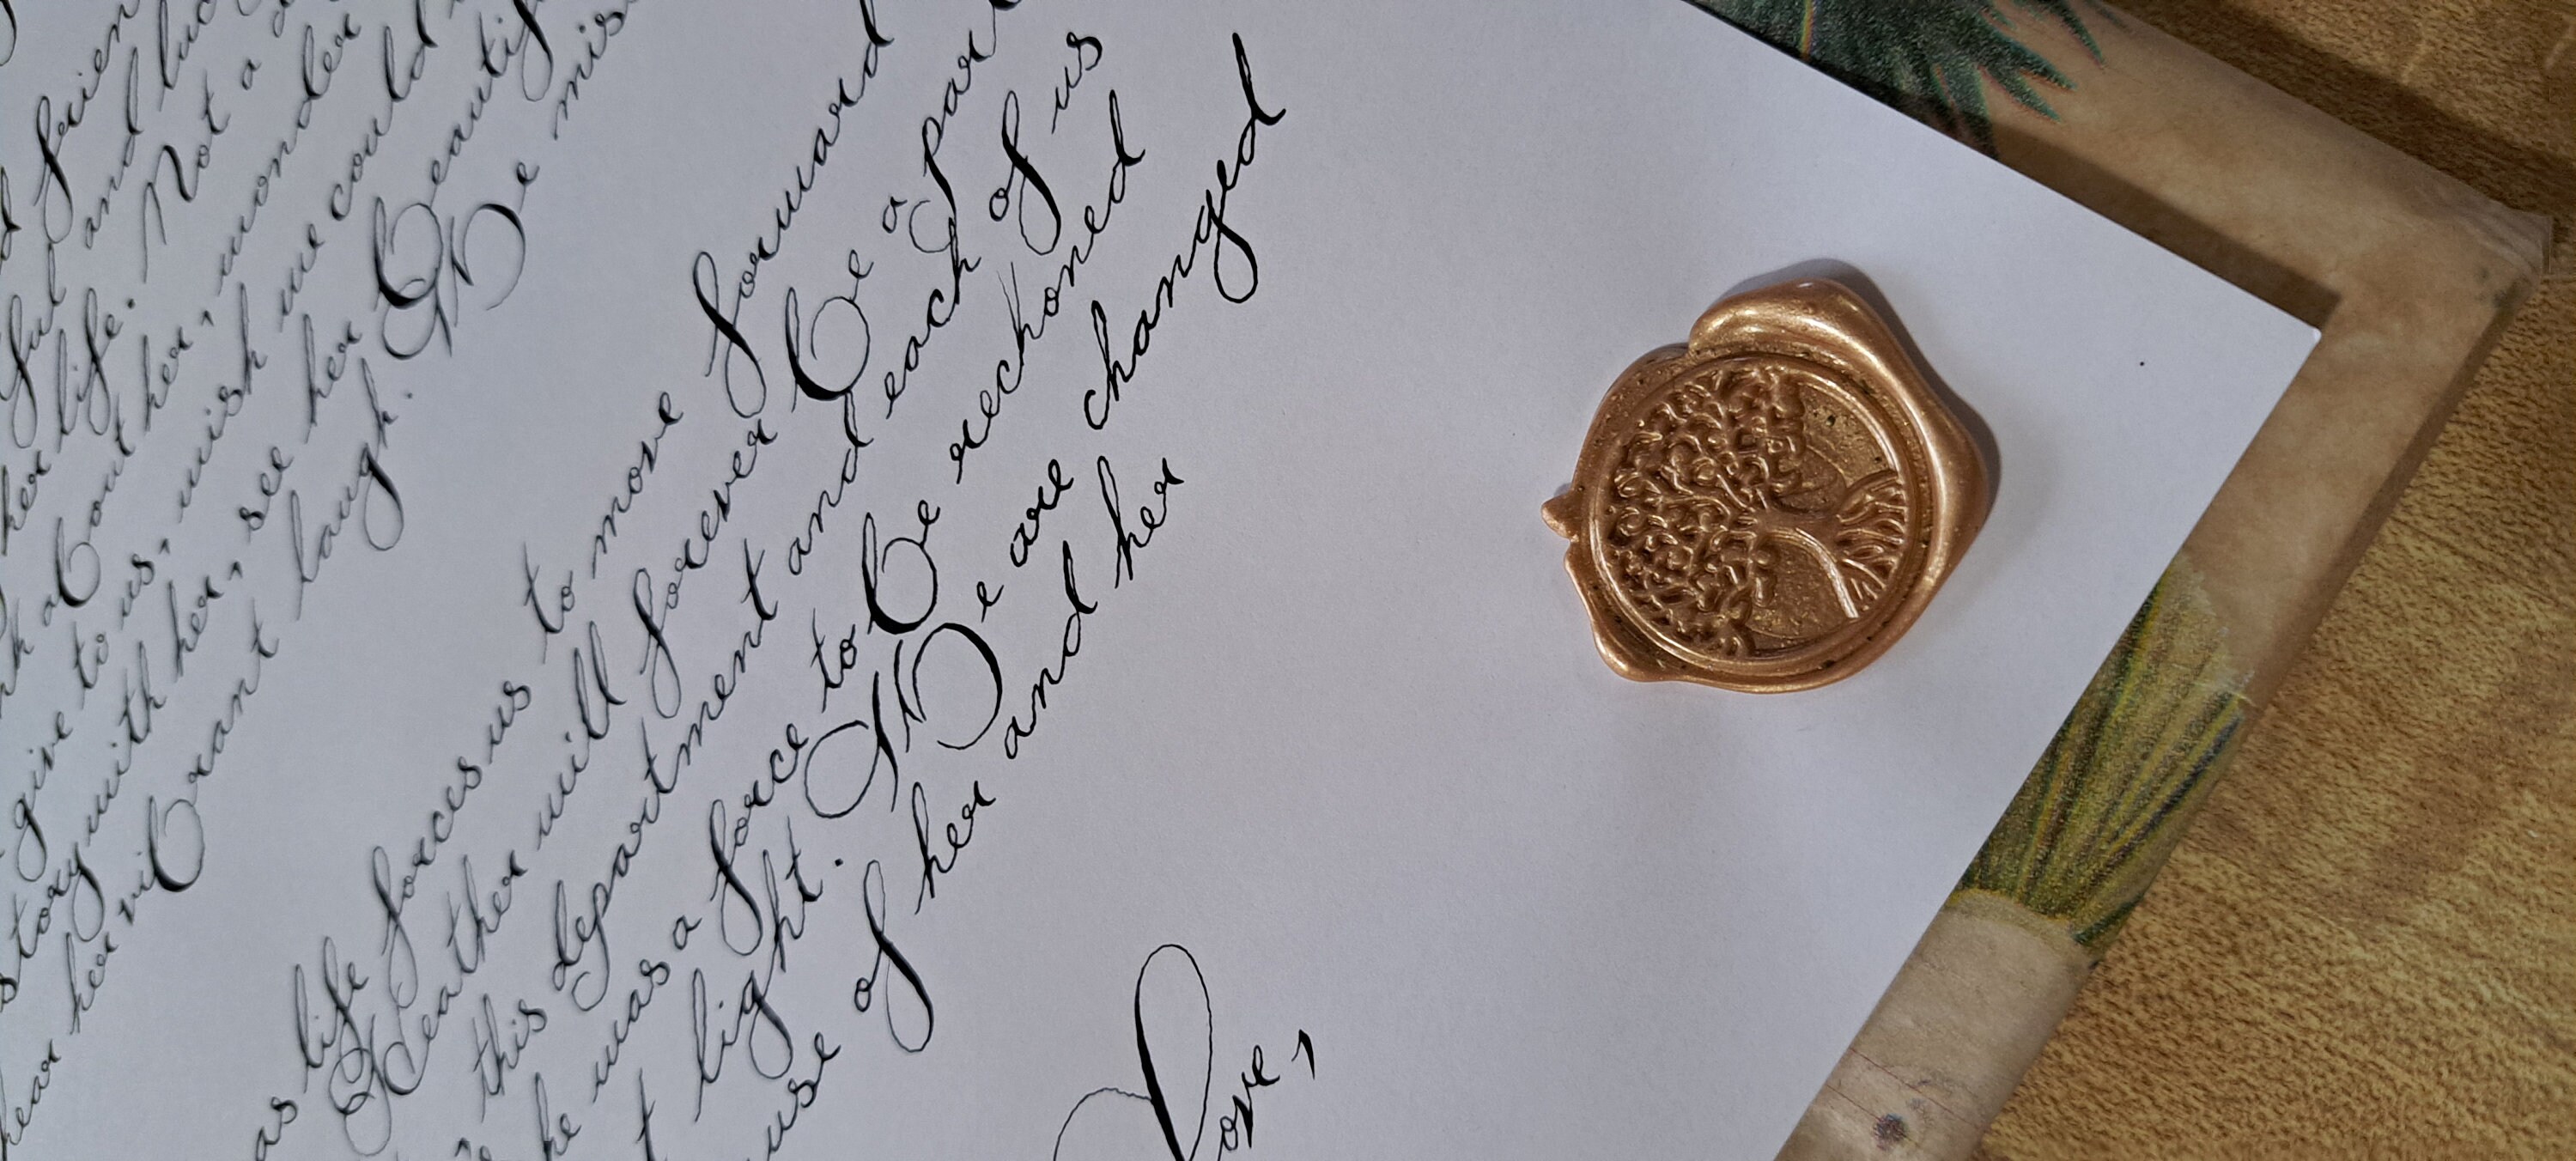 friend
ful and luc
her life. Not a d
about her, wonder
give to us, wish we could
story with her, see her beautif
hear her vibrant laugh. We mis
as life forces us to move forward
Heather will forever be a part
this department and each of us
he was a force to be rechoned
t light. We are changed
use of her and her
Love,